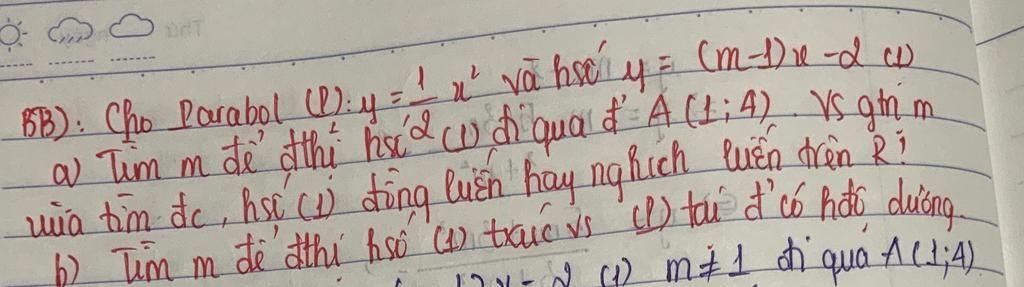 BB): Cho Parabol (P): y = 1/2 x² và hsố y = (m-1)x - 2 (1)
a) Tìm m để đthị hsố (1) đi qua đ' A (1; 4). Vs gtrị m
vừa tìm đc, hsố (1) đồng biến hay nghịch biến trên R?
b) Tìm m để đthị hsố (1) txúc vs (P) tại đ' có hđộ dương.
(1) m ≠ 1 đi qua A (1; 4)